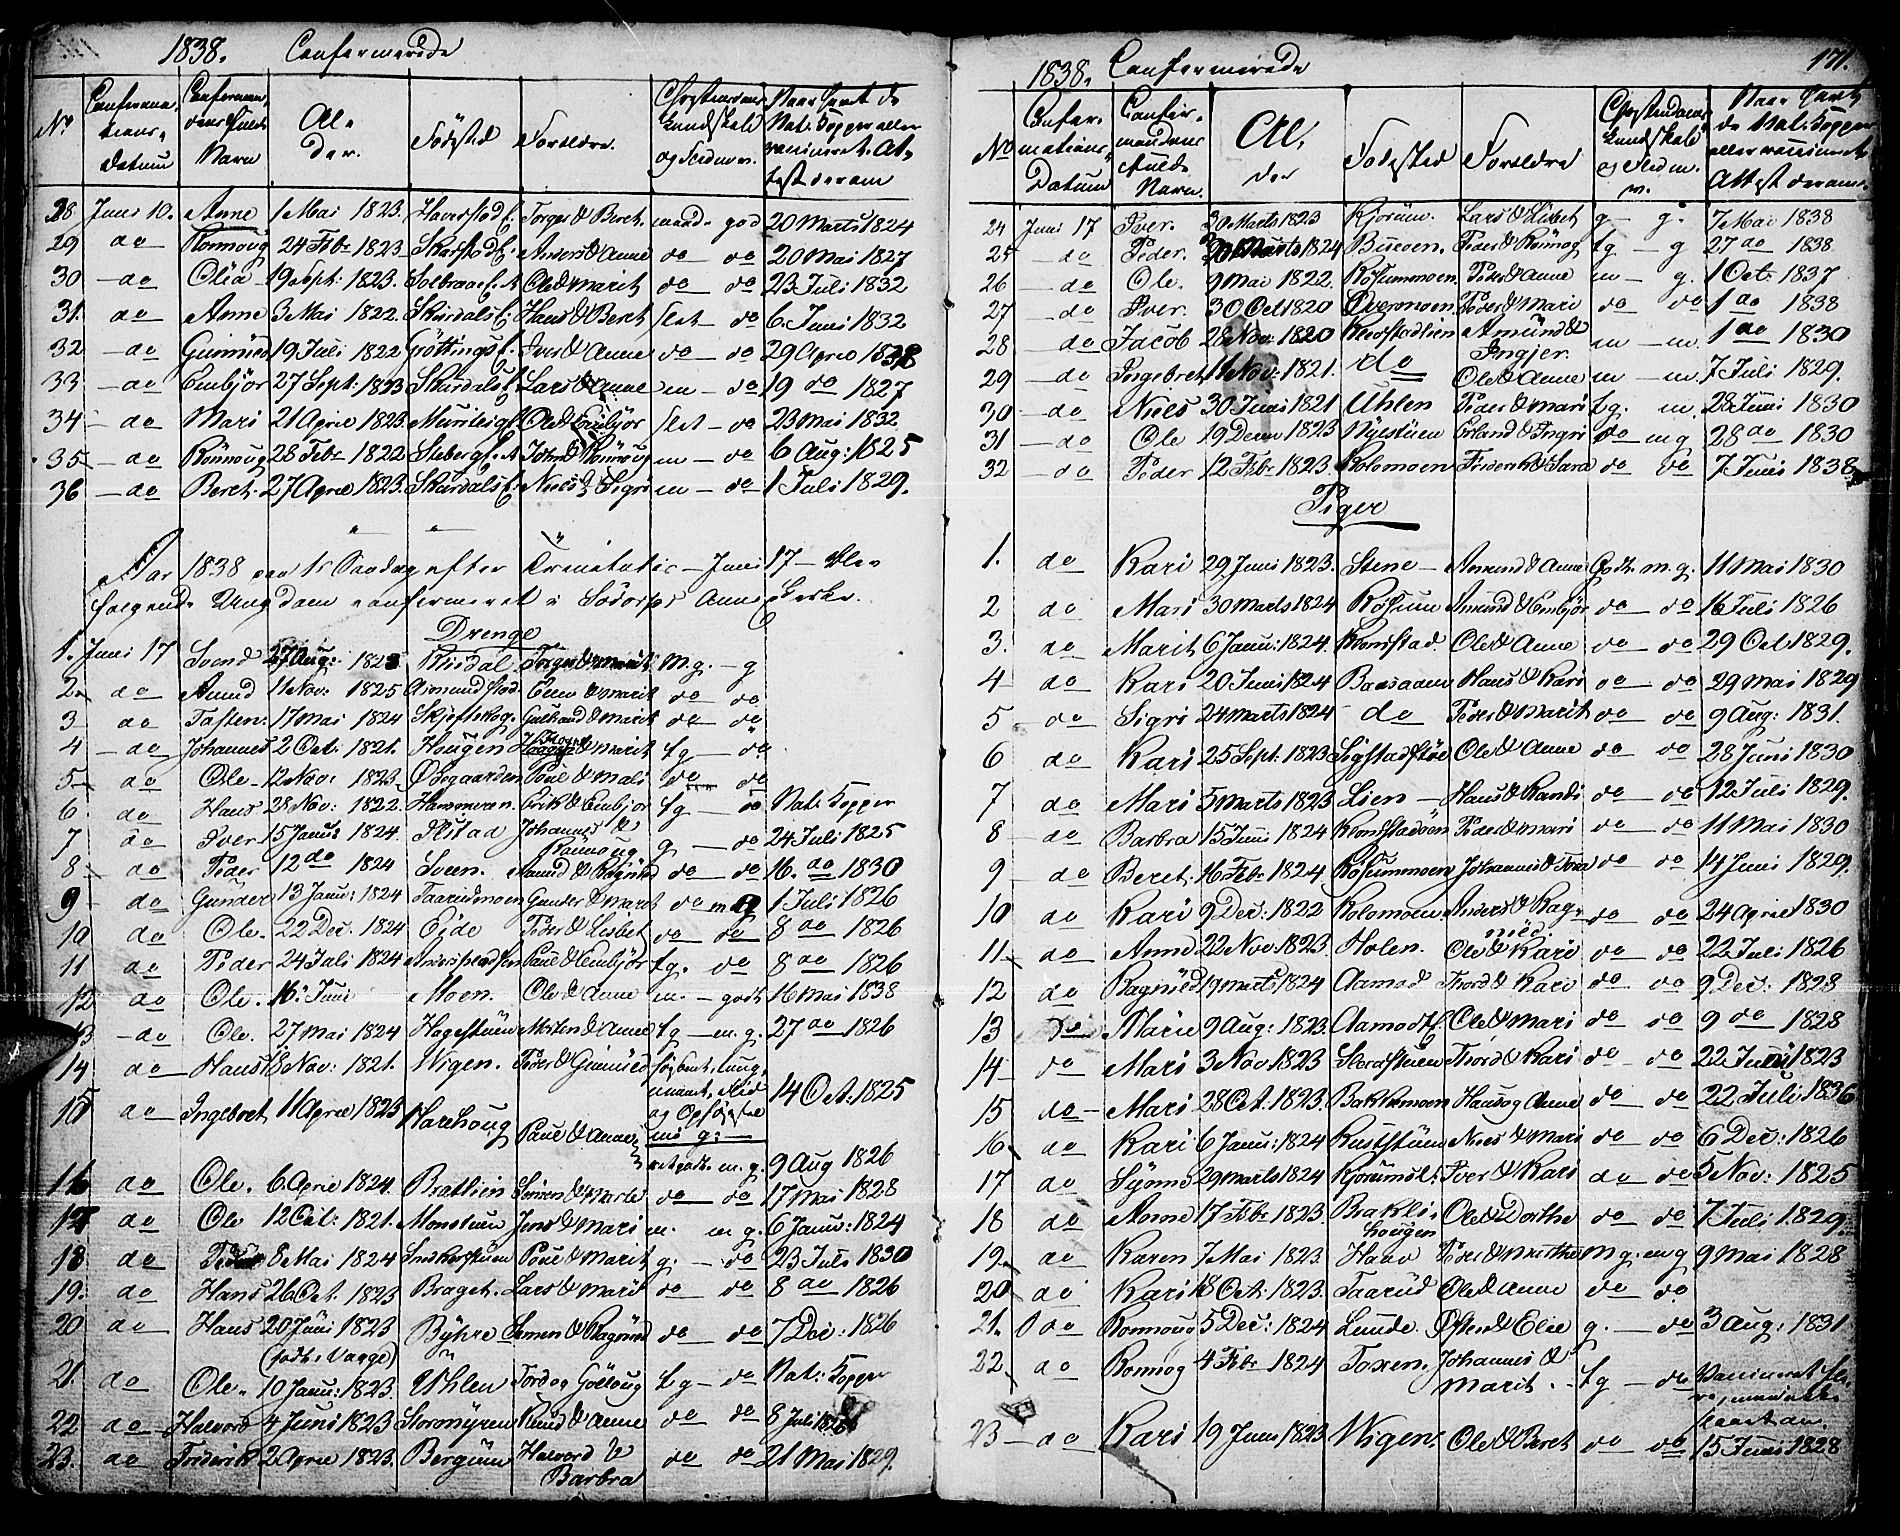 1838. Confirmerede
No
Confirma-
tions-
Datum
Confirman-
dens fulde
Navn
Al-
der.
Fødested
Forældre.
Christendoms
Kundskab
og Flid m.v.
Naar havt de
Nat: Kopper eller
vaccineret. At-
test derom
28 Juni 10. Anne 1 Mai 1823. Torger & Beret. maad- god 20 Marts 1824
29 do Ronnoug 24 Febr 1823 Anders & Anne do do 20 Mai 1827
30 do Olia 19 Sept: 1823. Ole & Marit do do 23 Juli 1832
31. do Anne 3 Mai 1822. SkurdalsE: Hans & Beret slet do 6. Juni 1832
32 do Gunnild 19 Juli 1822 Iver & Anne do do 29 April 1838
33 do Embjør 27 Sept: 1823 SkurdalsE. Lars & Anne m do 19 do 1827
34 do Mari 21 April 1823. Ole & Embjør slet do 23 Mai 1832
35 do Rønnoug 28 Febr 1822 John & Rønnoug m do 6 Aug: 1825
36 do Beret. 27 April 1823. SkurdalsE. Niels & Sigri m do 1 Juli 1829.
Aar 1838 paa 1s Søndag efter Trinitatis - Juni 17 - blev
følgende Ungdom confirmeret i Sødorps Annex Kirke.
Drenge
1. Juni 17 Svend 27 Aug: 1823 Kirsdal Torger & Marit m.g. - g
2. do Amund 11 Nov: 1825 Ener & Marit do do
3 do Tosten: 17 Mai 1824 Skjeftskog. Gulbrand & Marit do do
4 do Johannes 2 Oct: 1821. Hougen & Marit tg do
5 do Ole 12 Nov: 1823 Øvregaarden Poul & Mali do do
6. do Hans 28 Nov: 1822. Hammeren. Erik & Embjør tg do Nat: Kopper
7 do Iver 15 Janu: 1824. Ilstad Johannes &
Rannoug g do 24 Juli 1825
8 do Peder 12 do 1824 Sveen. Amund & Ragnild do do 16. do 1830
9 do Gunder 13 Janu: 1824 Taarudmoen Gunder & Marit do m g 1 Juli 1826
10 do Ole. 22 Dec: 1824 Eide Peder & Lisbet do do 8 do 1826
11 do Peder 24 Juli 1824 Poul & Embjør tg. do 8 do 1826
12 do Ole. 16: Juni Moen. Ole & Anne m. godt 16 Mai 1838
13 do Ole. 27 Mai 1824 Hagestuen Morten & Anne tg m.g. 27 do 1826
14 do Hans 18 Nov: 1821. Wigen. Peder & Gunnild
Flid
og Opførsel
14 Oct. 1825
15 do Ingebret 11 April 1823 Harehoug Poul & Anne
m. g. 9 Aug 1826
16 do Ole. 6 April 1824. Bratlien Simen & Marte do do 17 Mai 1828
17 do Ole 12 Oct: 1821. Monstuen Jens & Mari m. m g. 6 Janu: 1824
18 do Peder 8 Mai 1824 Poul & Marit g. do 23 Juli 1830
19. do Hans 26 Oct. 1823 Braget. Lars & Mari do do 8 do 1826
20 do Hans 20 Juni 1823 Byhre Simen & Ragnild do do 7 Dec: 1826
(født i Vaage)
21. do Ole. 10 Janu: 1823. Uhlen Tord og Gollaug tg do Nat: Kopper
22 do Halvord 4 Juni 1823 Stormyren Knud & Anne do do 8 Juli
23. do Frederik 2 April 1823. Bergum Halvord &
Barbra do do 21 Mai 1829.
171.
1838. Confirmerede
No
Confir-
mations-
Datum
Confir-
mandens
fulde
Navn.
Al-
der
Fødested
Forældre
Christendoms
Kundskab
og Flid m.
v.
Naar havt
de Nat. Kopper
eller vaccineret
Attest derom.
24 Juni 17 Iver. 30 Marts 1823 Kjorum. Lars & Lisbet g g. 7 Mai 1838
25 do Peder. Marts 1824 Peder & Rønnog tg g 27 do 1838
26 do Ole. 9 Mai 1822. Røsummoen Peder & Anne m g. 1 Oct: 1837
27 do Iver. 30 Oct 1820 Øvermoen Peder & Mari do do 1 do 1838
28 do Jacob 28 Nov: 1820 Amund &
Ingjer. m m. 1 do 1830
29 do Ingebret 11 Nov: 1821. do Ole & Anne m m. 7 Juli 1829.
30 do Niels 30 Juni 1821 Uhlen Peder & Mari tg. m. 28 Juni 1830
31 do Ole 19 Decem 1823 Nyestuen Erland & Ingri do m g 28 do 1830
32 do Peder 12 Febr 1823. Kolomoen Frederik & Sara do do 7 Juni 1838
Piger
1. do Kari 29 Juni 1823. Stene Amund & Anne Godt. m.g. 11 Mai 1830
2 do Mari 30 Marts 1824 Røsum Amund & Embjør do do 16 Juli 1826
3. do Marit 6 Janu: 1824. Kromstad. Ole & Anne do do 29 Oct 1829.
4 do Kari 20 Juni 1824 Baasaaen Hans & Kari do do 29 Mai 1829
5 do Sigri 24 Marts 1824 do Peder & Marit do do 9 Aug: 1831.
6 do Kari 25 Sept: 1823 Ole & Anne do do 28 Juni 1830
7 do Mari 5 Marts 1823 Lien Hans & Randi do do 12 Juli 1829.
8 do Barbra 15 Juni 1824 Peder & Mari do do 11 Mai 1830
9 do Beret. 16 Febr 1824 Røsummoen Johannes & Tora do do 14 Juni 1829.
10 do Kari 9 Dec: 1822 Kolomoen Anders & Rag-
nild. do do 24 April 1830
11 do Anne 22 Nov: 1823. Holen. Ole & Kari do do 22 Juli 1826
12 do Ragnild 19 Marts 1824 Aamod Thord & Kari do do 9 Dec: 1828
13 do Marie 9 Aug: 1823. AamodtE. Ole & Mari do do 9 do 1828
14 do Mari 3 Nov 1823 Thord & Kari do do 22 Juni 1823
15 do Mari 28 Oct. 1823. Bakkemoen Hans og Anne do do 22 Juli 1836
16 do Kari 6 Janu: 1824 Ruststuen Niels & Mari do do 6 Dec: 1826
17 do Synno 29 Marts 1824 Iver & Kari do do 5 Nov: 1825
18 do Anne 17 Febr 1823. Bakli-
hougen Ole & Dorthe do do 7 Juli 1829.
19. do Karen 7 Mai 1823. Haav Peder & Marthe m g. m g 9 Mai 1828
20 do Kari 18 Oct: 1823. Taarud Ole & Anne do do
21. do Ronnoug 5 Dec: 1824 Lunde Østen & Elie g. do 3 Aug: 1831
22 do Ronnog 4 Febr 1824 Toxen. Johannes &
Marit. tg do Vaccineret
23 do Kari 19 Juni 1823 Wigen. Ole & Beret do do 15 Juni 1828